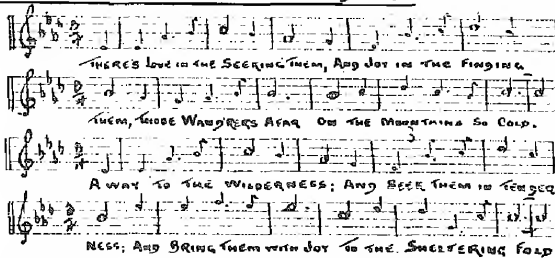 THERE'S LOVE IN THE SEEKING THEM, AND JOY IN THE FINDING
THEM, THOSE WAND'RERS AFAR ON THE MOUNTAINS SO COLD.
AWAY TO THE WILDERNESS; AND SEEK THEM IN TENDER
NESS; AND BRING THEM WITH JOY TO THE SHELTERING FOLD